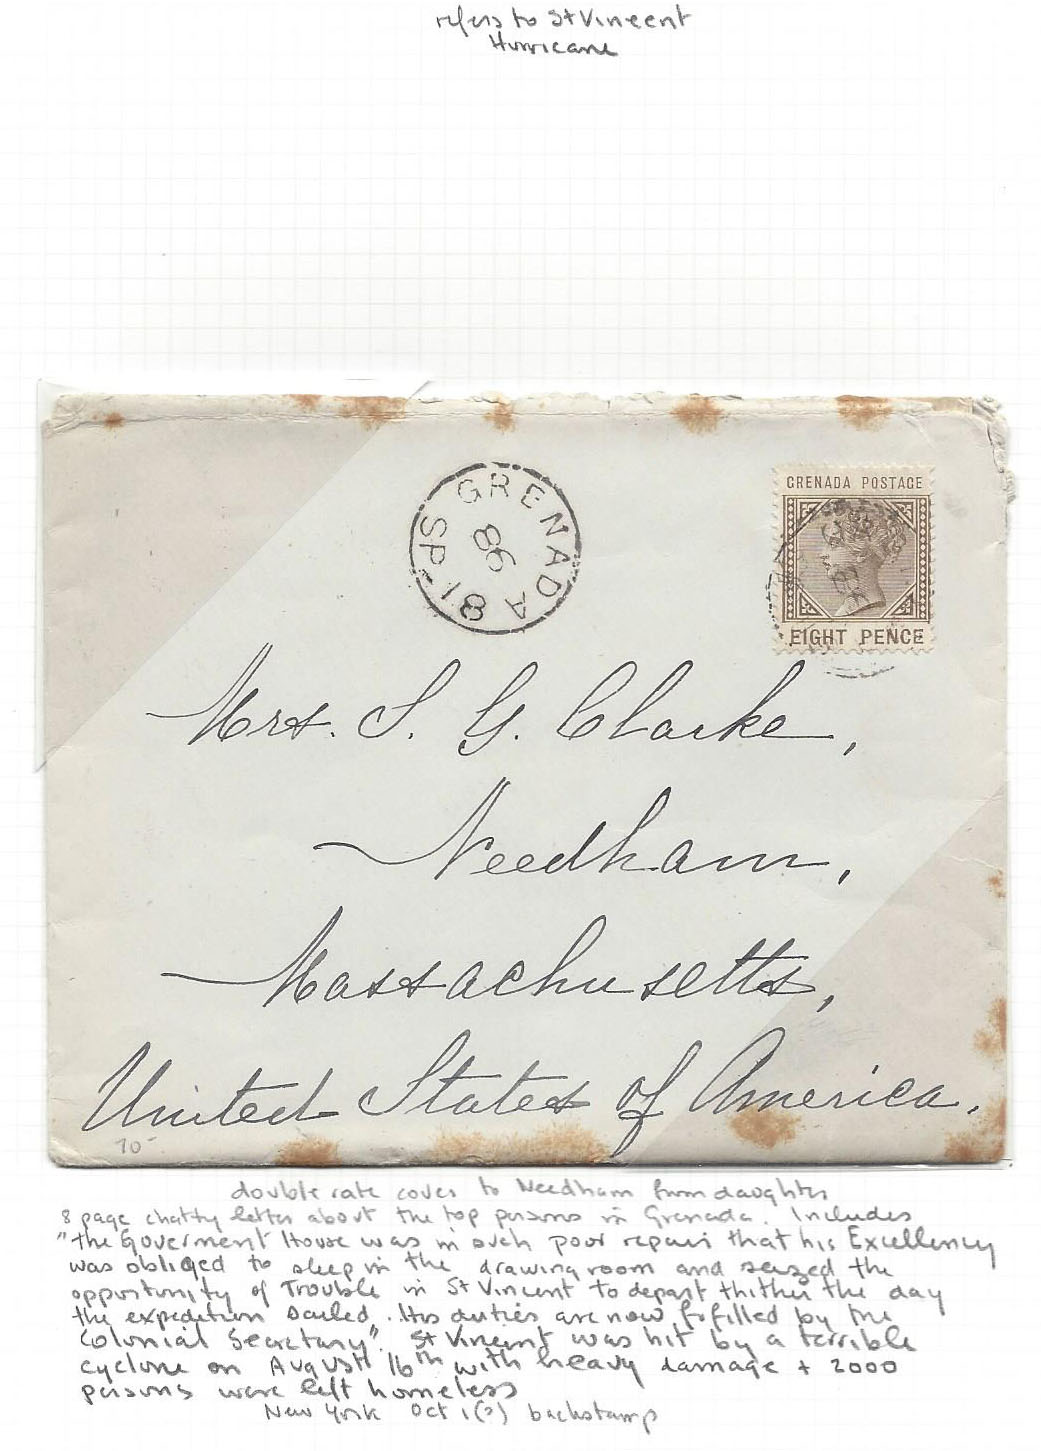 refers to St Vincent
Hurricane
GRENADA
18 SP
86
GRENADA POSTAGE
EIGHT PENCE
Mrs. S. G. Clarke,
Needham,
Massachusetts,
United States of America.
70-
double rate cover to Needham from daughter
8 page chatty letter about the top persons in Grenada. Includes
"the Goverment House was in such poor repair that his Excellency
was obliged to sleep in the drawing room and seized the
opportunity of Trouble in St Vincent to depart thither the day
the expedition sailed. His duties are now fofilled by the
Colonial Secretary". St Vincent was hit by a terrible
cyclone on August 16th with heavy damage + 2000
persons were left homeless
New York Oct 1(?) backstamp